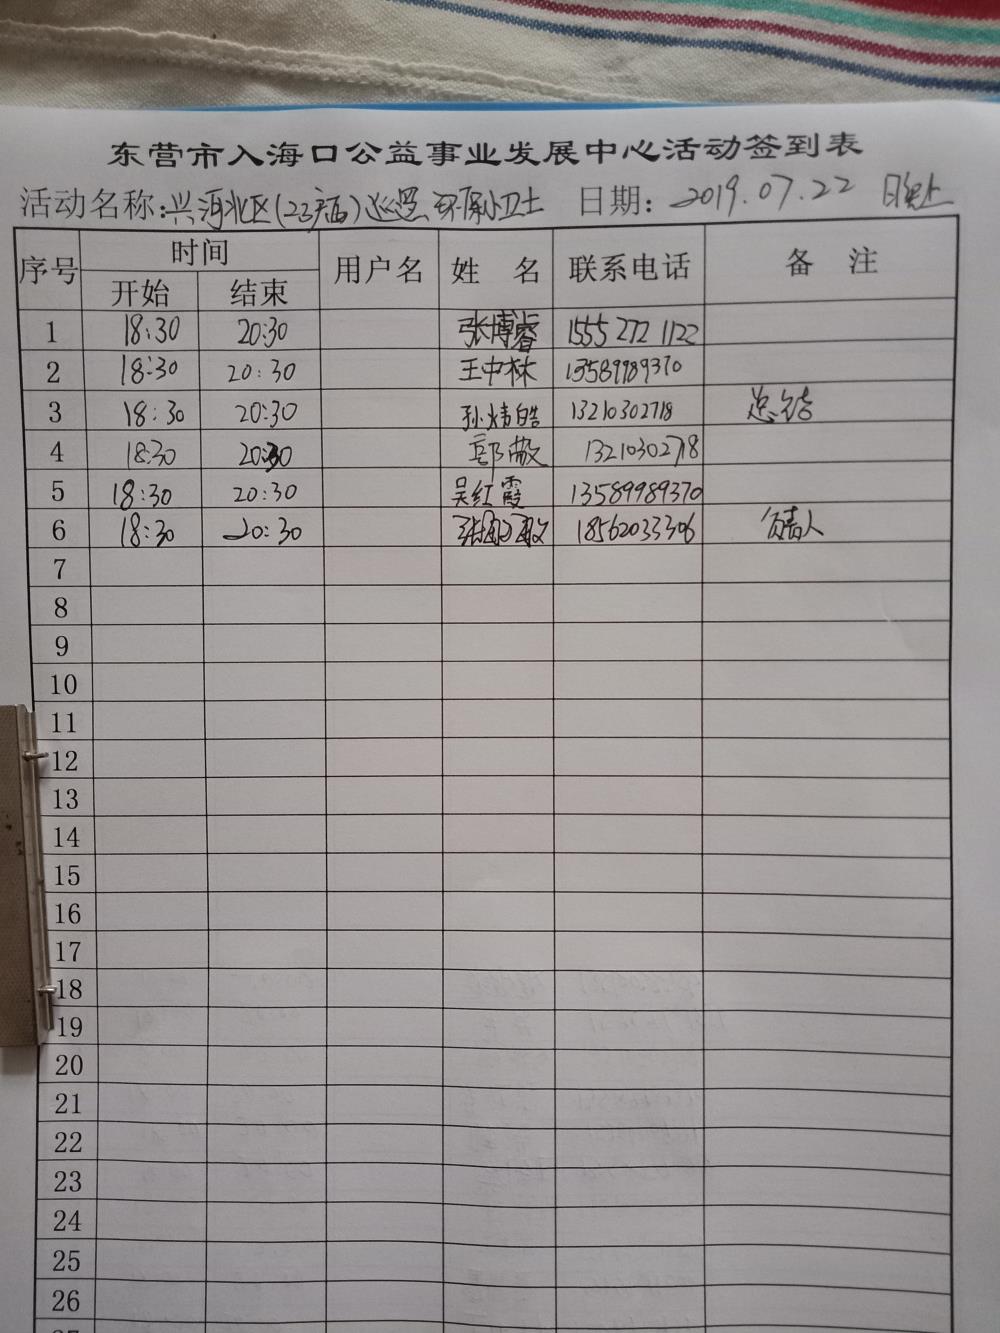 东营市入海口公益事业发展中心活动签到表
活动名称:兴河北区(23 巡逻 环保小卫士 日期: 2019.07.22 晚上
序号 时间 用户名 姓 名 联系电话 备 注
开始 结束
1 18:30 20:30 张博睿 1555 272 1122
2 18:30 20:30 王中林 13589989370
3 18:30 20:30 孙炜皓 13210302718 总结
4 18:30 20:30 郭敬 13210302718
5 18:30 20:30 吴红霞 13589989370
6 18:30 20:30 张 18562033306 负责人
7
8
9
10
11
12
13
14
15
16
17
18
19
20
21
22
23
24
25
26